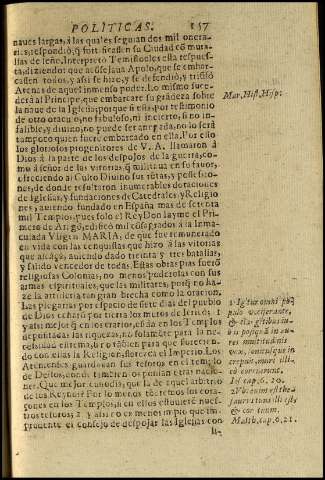 POLITICAS. 157
naues largas, á las quales seguian dos mil onera-
rias, respondiò, q̃ fortificassen su Ciudad cõ mura-
llas de leño. Interpretò Temistocles esta respues-
ta, diziendo: que aconsejaua Apolo, que se embar-
cassen todos, y assi se hizo, y se defendiò, y triũfò
Atenas de aquel inmenso poder. Lo mismo suce-
derà al Principe, que embarcare su grandeza sobre
la naue de la Iglesia, porque si esta, por testimonio
de otro oraculo, no fabuloso, ni incierto, si no in-
falible, y diuino, no puede ser anegada, no lo serà
tampoco quien fuere embarcado en ella. Por esto
los gloriosos progenitores de V. A. llamaron à
Dios à la parte de los despojos de la guerra, co-
mo à señor de las vitorias, q̃ militaua en su fauor,
ofreciendo al Culto Diuino sus rentas, y possessio-
nes, de donde resultaron inumerables dotaciones
de Iglesias, y fundaciones de Catedrales, y Religio
nes, auiendo fundado en España mas de setenta
mil Templos, pues solo el Rey Don Iayme el Pri-
mero de Aragõ, edificò mil cõsagrados à la Inma-
culada Virgen MARIA, de que fue remunerado
en vida con las conquistas que hizo, à las vitorias
que alcãçò, auiendo dado treinta y tres batallas,
y salido vencedor de todas. Estas obras pias fuerõ
religiosas Colonias, no menos poderosas con sus
armas espirituales, que las militares, porq̃ no ha-
ze la artilleria tan gran brecha como la oracion.
Las plegarias por espacio de siete dias del pueblo
de Dios echarõ por tierra los muros de Iericò. 1
y assi mejor q̃ en los erarios, estàn en los Templos
depositadas las riquezas, no solamẽte para la ne-
cessidad estrema, sino tãbien para que floreciẽ-
do con ellas la Religion, florezca el Imperio. Los
Atenienses guardauan sus tesoros en el templo
de Delfos, donde tambien los ponian otras nacio-
nes. Que mejor custodia, que la de aquel arbitro
de los Reynos? Por lo menos tẽdremos los cora-
çones en los Templos, si en ellos estuuierẽ nues-
tros tesoros; 2 y assi no es menos impio que im-
prudente el consejo de despojar las Iglesias con
li-
Mar. Hist. Hisp:
1 Igitur omni po-
pulo vociferante,
& clangentibus tu-
bis postquã in au-
res multitudinis
vox, sonitusque in
crepuit, muri illi-
co corruerunt.
Ios. cap. 6. 20.
2 Vbi enim est the-
saurus tuus, ibi est,
& cor tuum.
Matth. cap. 6. 21.